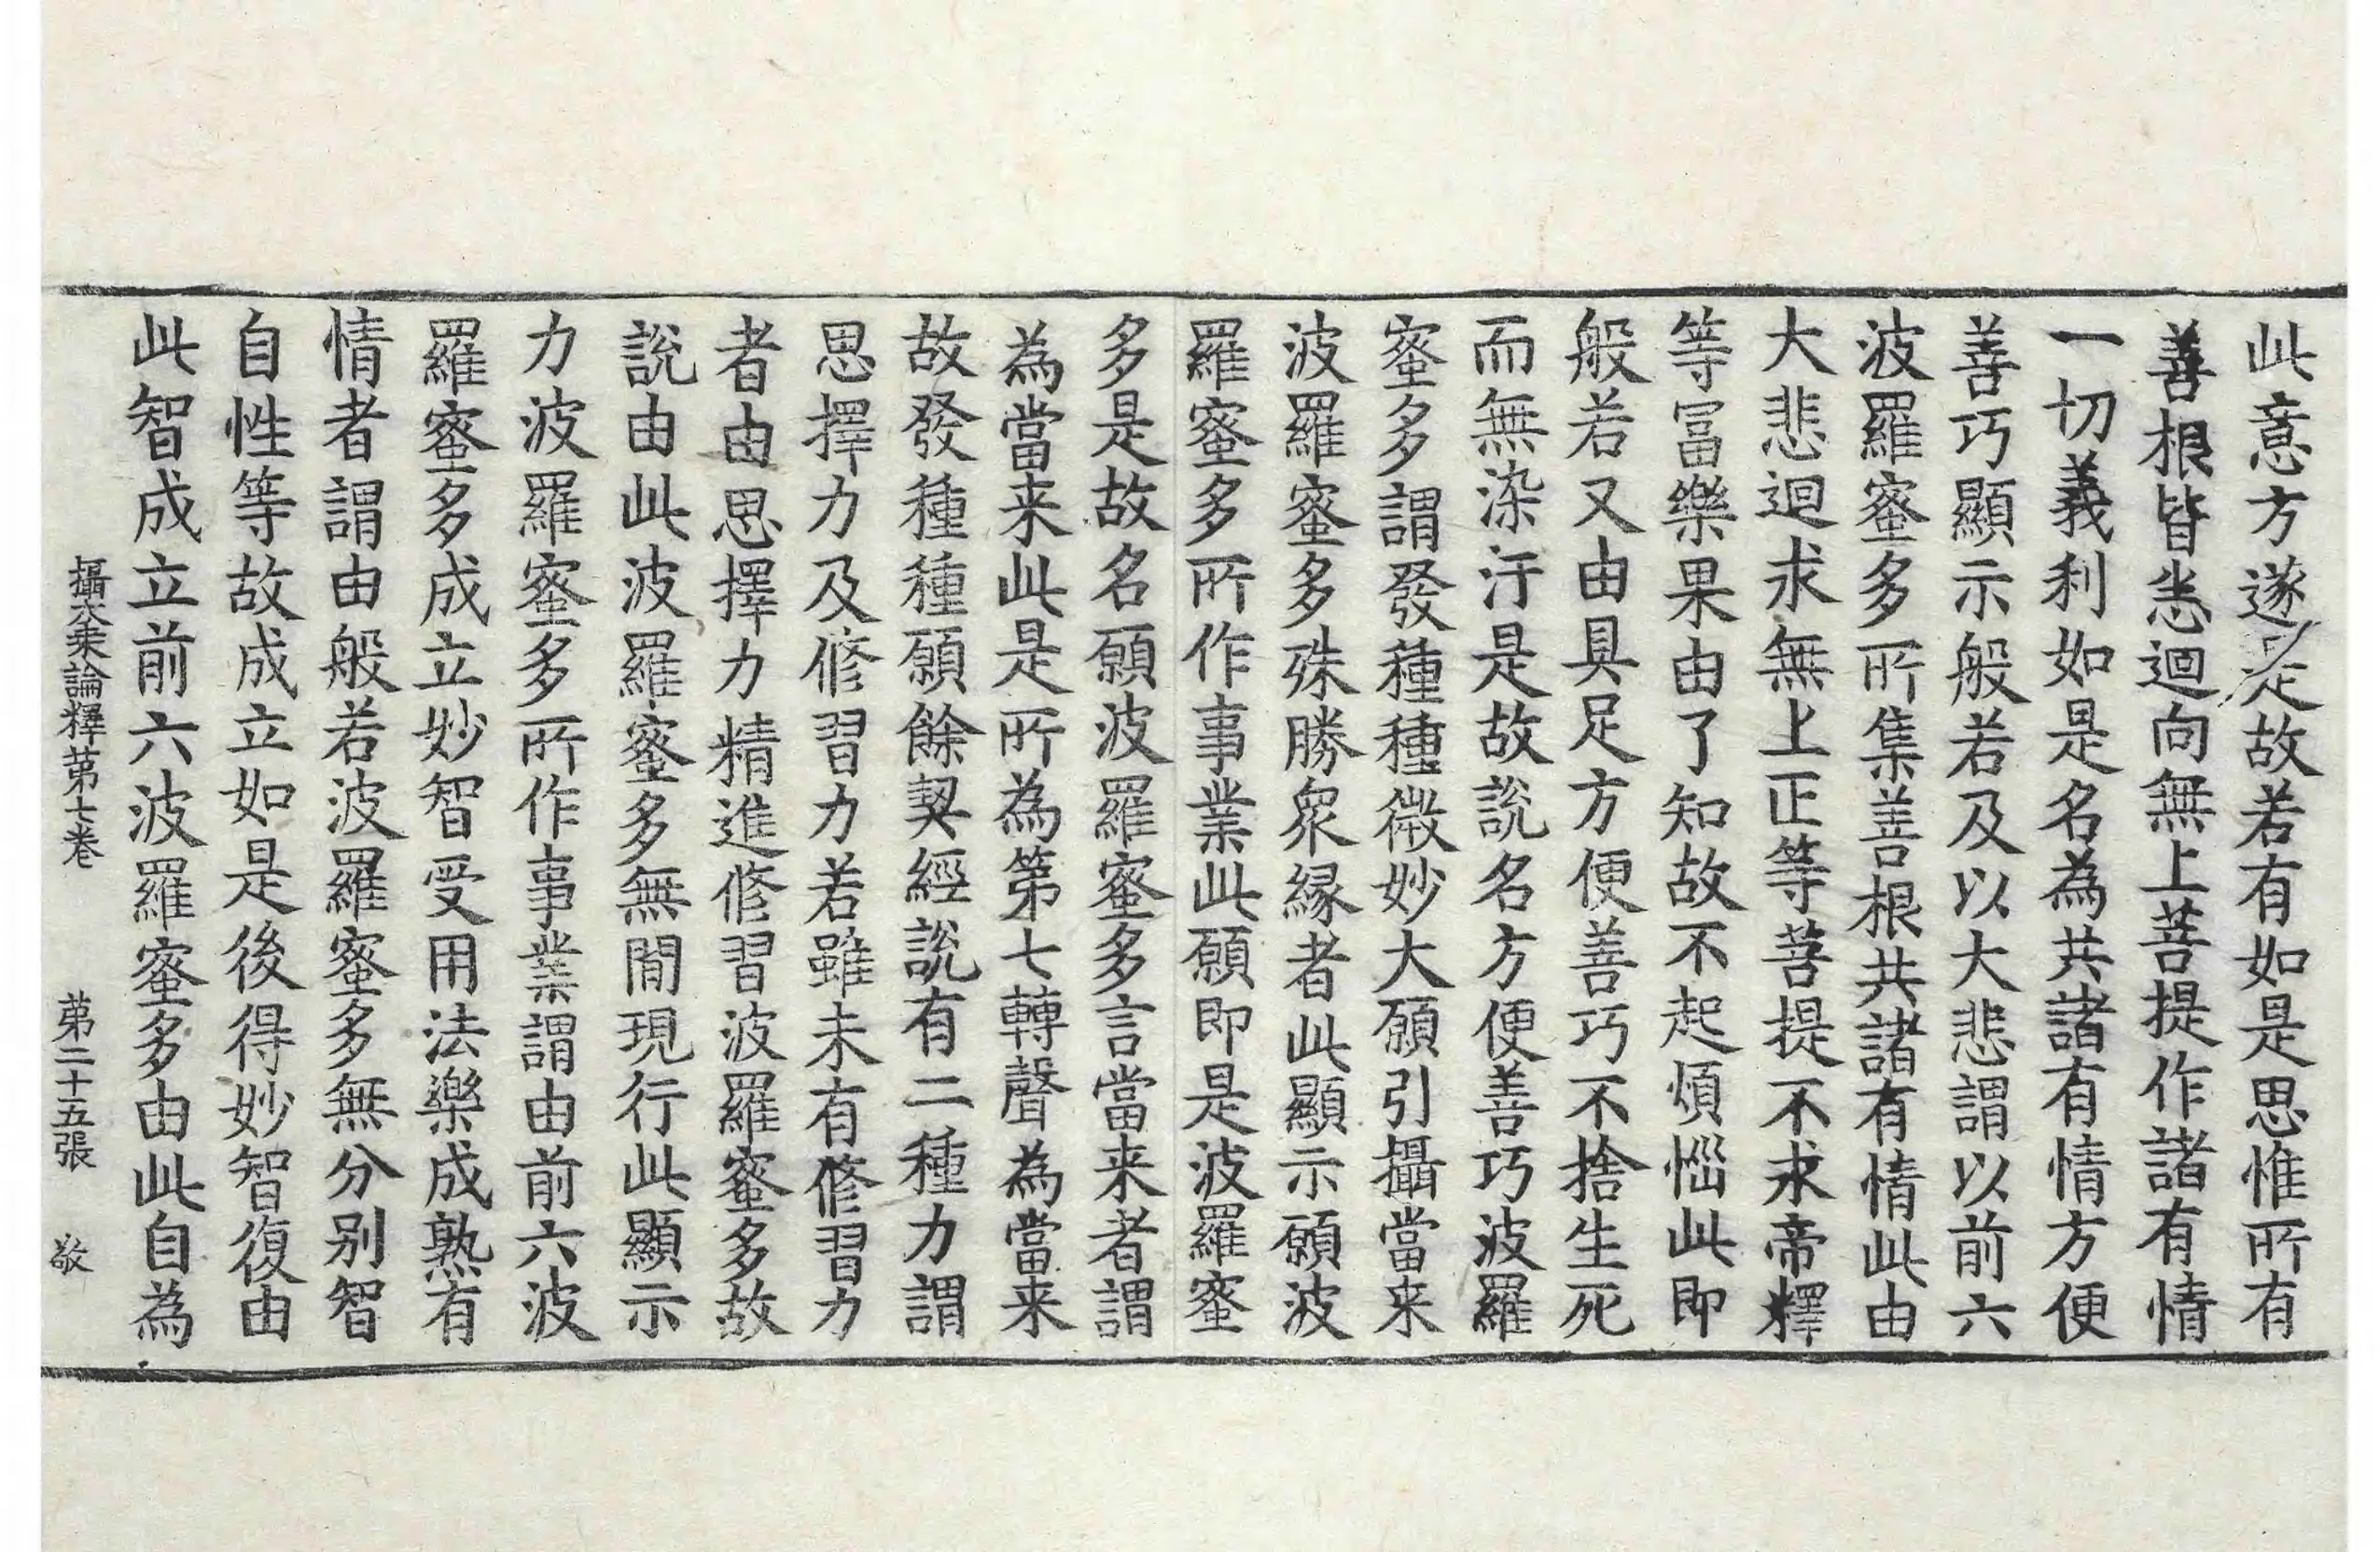 此意方遂是故若有如是思惟所有
善根皆悉迴向無上菩提作諸有情
一切義利如是名為共諸有情方便
善巧顯示般若及以大悲謂以前六
波羅蜜多所集善根共諸有情此由
大悲迴求無上正等菩提不求帝釋
等冨樂果由了知故不起煩惱此即
般若又由具足方便善巧不捨生死
而無染汙是故說名方便善巧波羅
蜜多謂發種種微妙大願引攝當来
波羅蜜多殊勝衆縁者此顯示願波
羅蜜多所作事業此願即是波羅蜜
多是故名願波羅蜜多言當来者謂
為當来此是所為第七轉聲為當来
故發種種願餘契經說有二種力謂
思擇力及修習力若雖未有修習力
者由思擇力精進修習波羅蜜多故
說由此波羅蜜多無間現行此顯示
力波羅蜜多所作事業謂由前六波
羅蜜多成立妙智受用法樂成熟有
情者謂由般若波羅蜜多無分别智
自性等故成立如是後得妙智復由
此智成立前六波羅蜜多由此自為
攝大乘論釋第七卷 第二十五張 敬